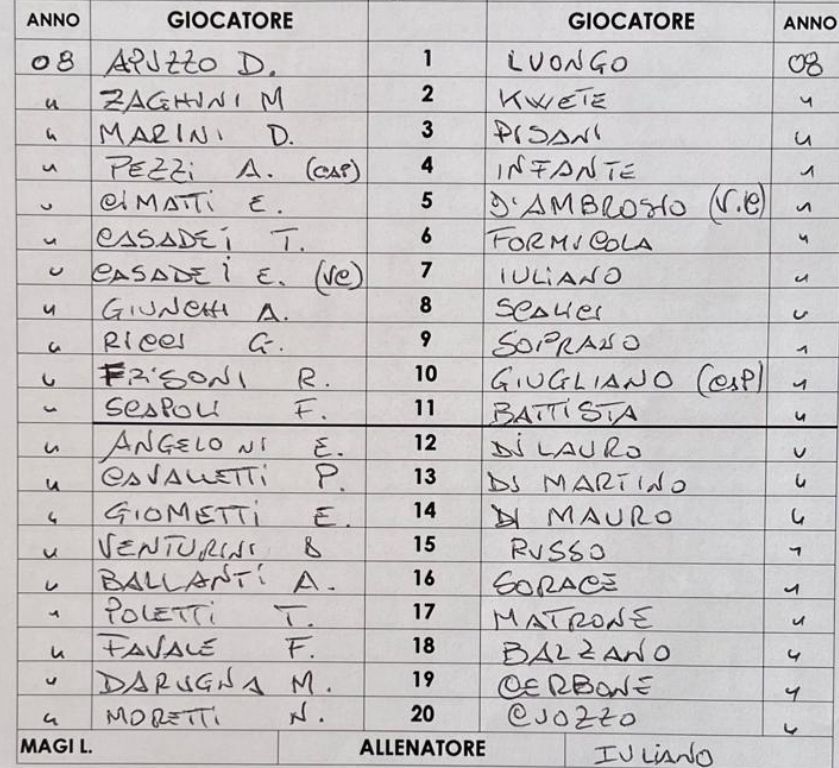 ANNO GIOCATORE GIOCATORE ANNO
08 APUZZO D. 1 LUONGO 08
" ZAGHINI M 2 KWETE "
" MARINI D. 3 PISANI "
" PEZZI A. (CAP) 4 INFANTE "
" CIMATTI E. 5 D'AMBROSIO (V.C) "
" CASADEI T. 6 FORMICOLA "
" CASADEI E. (VC) 7 IULIANO "
" GIUNCHI A. 8 SCALICI "
" RICCI G. 9 SOPRANO "
" FRISONI R. 10 GIUGLIANO (CAP) "
" SCAPOLI F. 11 BATTISTA "
" ANGELONI E. 12 DI LAURO "
" CAVALLETTI P. 13 DI MARTINO "
" GIOMETTI E. 14 DI MAURO "
" VENTURINI B 15 RUSSO "
" BALLANTI A. 16 SORACE "
" POLETTI T. 17 MATRONE "
" FAVALE F. 18 BALZANO "
" DARUGNA M. 19 CERBONE "
" MORETTI N. 20 CUOZZO "
MAGI L. ALLENATORE IULIANO